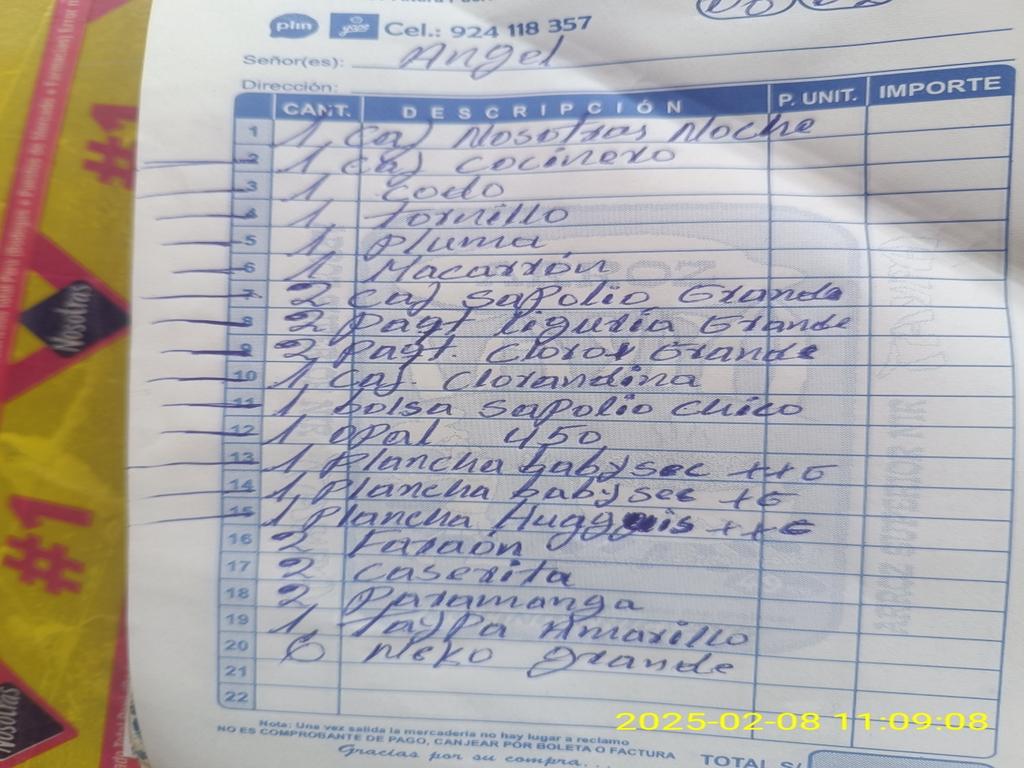 plin yape Cel.: 924 118 357
Señor(es): Angel
Dirección:
CANT. DESCRIPCIÓN P. UNIT. IMPORTE
1 1, caj Nosotras Noche
2 1, caj cocinero
3 1 codo
4 1, tornillo
5 1, pluma
6 1 Macarrón
7 2 caj sapolio Grande
8 2 paqt liguria Grande
9 2 paqt. Clorox Grande
10 1, caj. Clorandina
11 1, bolsa sapolio chico
12 1, opal 450
13 1, plancha babysec ++G
14 1, plancha babysec +G
15 1 plancha Hugguis ++G
16 2 Faraón
17 2 caserita
18 2 paramanga
19 1, Taypa Amarillo
20 6 Neko grande
21
22
Nota: Una vez salida la mercadería no hay lugar a reclamo
NO ES COMPROBANTE DE PAGO, CANJEAR POR BOLETA O FACTURA
Gracias por su compra...
TOTAL S/
2025-02-08 11:09:08
#1
Nosotras
#1
Nosotras